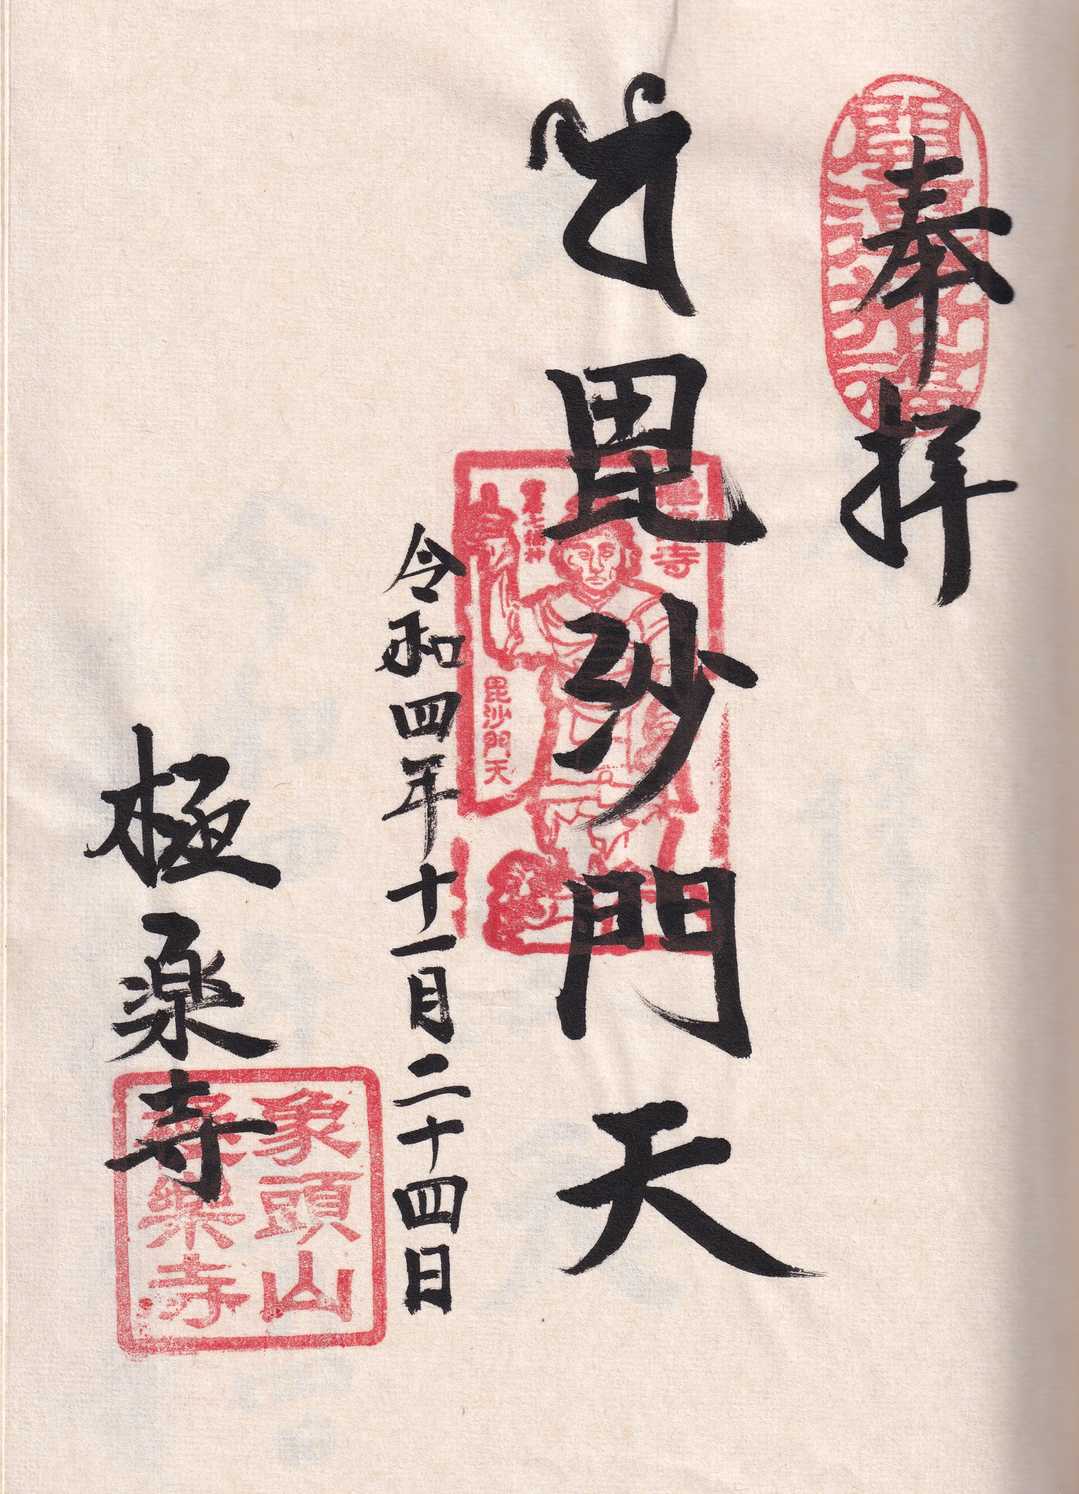 奉拝
毘沙門天
令和四年十一月二十四日
極楽寺
毘沙門天
象頭山
極樂寺